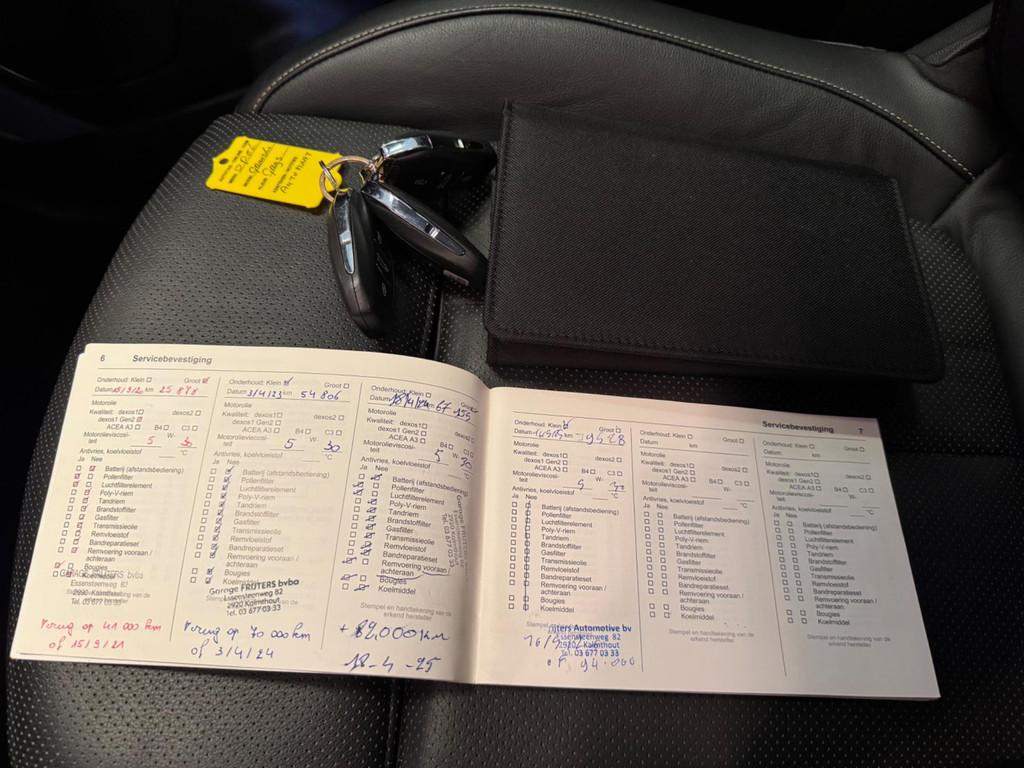 6 Servicebevestiging
Onderhoud: Klein ☐ Groot ☑
Datum 15/9/20 km 25 878
Motorolie
Kwaliteit: dexos1 ☐ dexos2 ☐
dexos1 Gen2 ☑
ACEA A3 ☐ B4 ☐ C3 ☐
Motorolieviscosi- 5 W- 30
teit
Antivries, koelvloeistof °C
Ja Nee
Batterij (afstandsbediening)
Pollenfilter
Luchtfilterelement
Poly-V-riem
Tandriem
Brandstoffilter
Gasfilter
Transmissieolie
Remvloeistof
Bandreparatieset
Remvoering vooraan /
achteraan
Bougies
Koelmiddel
GARAGE FRUITERS bvba
Essensteenweg 82
2920 Kalmthout
Tel. 03 677 03 33
Vroeg op 41 000 km
of 15/9/21
Onderhoud: Klein ☑ Groot ☐
Datum 3/4/23 km 54 806
Motorolie
Kwaliteit: dexos1 ☐ dexos2 ☐
dexos1 Gen2 ☐
ACEA A3 ☐ B4 ☐ C3 ☐
Motorolieviscosi- 5 W- 30
teit
Antivries, koelvloeistof °C
Ja Nee
Batterij (afstandsbediening)
Pollenfilter
Luchtfilterelement
Poly-V-riem
Tandriem
Brandstoffilter
Gasfilter
Transmissieolie
Remvloeistof
Bandreparatieset
Remvoering vooraan /
achteraan
Bougies
Koelmiddel
Garage FRUITERS bvba
Essensteenweg 82
2920 Kalmthout
Tel. 03 677 03 33
Vroeg op 70 000 km
of 3/4/24
Onderhoud: Klein ☐
Datum 18/4/24 67 155
Motorolie
Kwaliteit: dexos1 ☐ dexos2 ☐
dexos1 Gen2 ☐
ACEA A3 ☐ B4 ☐ C3 ☐
Motorolieviscosi- 5 30
teit
Antivries, koelvloeistof °C
Ja Nee
Batterij (afstandsbediening)
Pollenfilter
Luchtfilterelement
Poly-V-riem
Tandriem
Brandstoffilter
Gasfilter
Transmissieolie
Remvloeistof
Bandreparatieset
Remvoering vooraan /
achteraan
Bougies
Koelmiddel
Stempel en handtekening van de
erkend hersteller
+ 82,000 km
18-4-25
Servicebevestiging 7
Onderhoud: Klein ☑ Groot ☐
Datum km
Motorolie
Kwaliteit: dexos1 ☐ dexos2 ☐
dexos1 Gen2 ☐
ACEA A3 ☐ B4 ☐ C3 ☐
Motorolieviscosi- 5 30
teit
Antivries, koelvloeistof °C
Ja Nee
Batterij (afstandsbediening)
Pollenfilter
Luchtfilterelement
Poly-V-riem
Tandriem
Brandstoffilter
Gasfilter
Transmissieolie
Remvloeistof
Bandreparatieset
Remvoering vooraan /
achteraan
Bougies
Koelmiddel
Automotive bv
Essensteenweg 82
2920 Kalmthout
Tel. 03 677 03 33
94.000
Onderhoud: Klein ☐ Groot ☐
Datum km
Motorolie
Kwaliteit: dexos1 ☐ dexos2 ☐
dexos1 Gen2 ☐
ACEA A3 ☐ B4 ☐ C3 ☐
Motorolieviscosi- W-
teit
Antivries, koelvloeistof °C
Ja Nee
Batterij (afstandsbediening)
Pollenfilter
Luchtfilterelement
Poly-V-riem
Tandriem
Brandstoffilter
Gasfilter
Transmissieolie
Remvloeistof
Bandreparatieset
Remvoering vooraan /
achteraan
Bougies
Koelmiddel
Stempel en handtekening van de
erkend hersteller
Onderhoud: Klein ☐ Groot ☐
Datum km
Motorolie
Kwaliteit: dexos1 ☐ dexos2 ☐
dexos1 Gen2 ☐
ACEA A3 ☐ B4 ☐ C3 ☐
Motorolieviscosi- W-
teit
Antivries, koelvloeistof °C
Ja Nee
Batterij (afstandsbediening)
Pollenfilter
Luchtfilterelement
Poly-V-riem
Tandriem
Brandstoffilter
Gasfilter
Transmissieolie
Remvloeistof
Bandreparatieset
Remvoering vooraan /
achteraan
Bougies
Koelmiddel
Stempel en handtekening van de
erkend hersteller